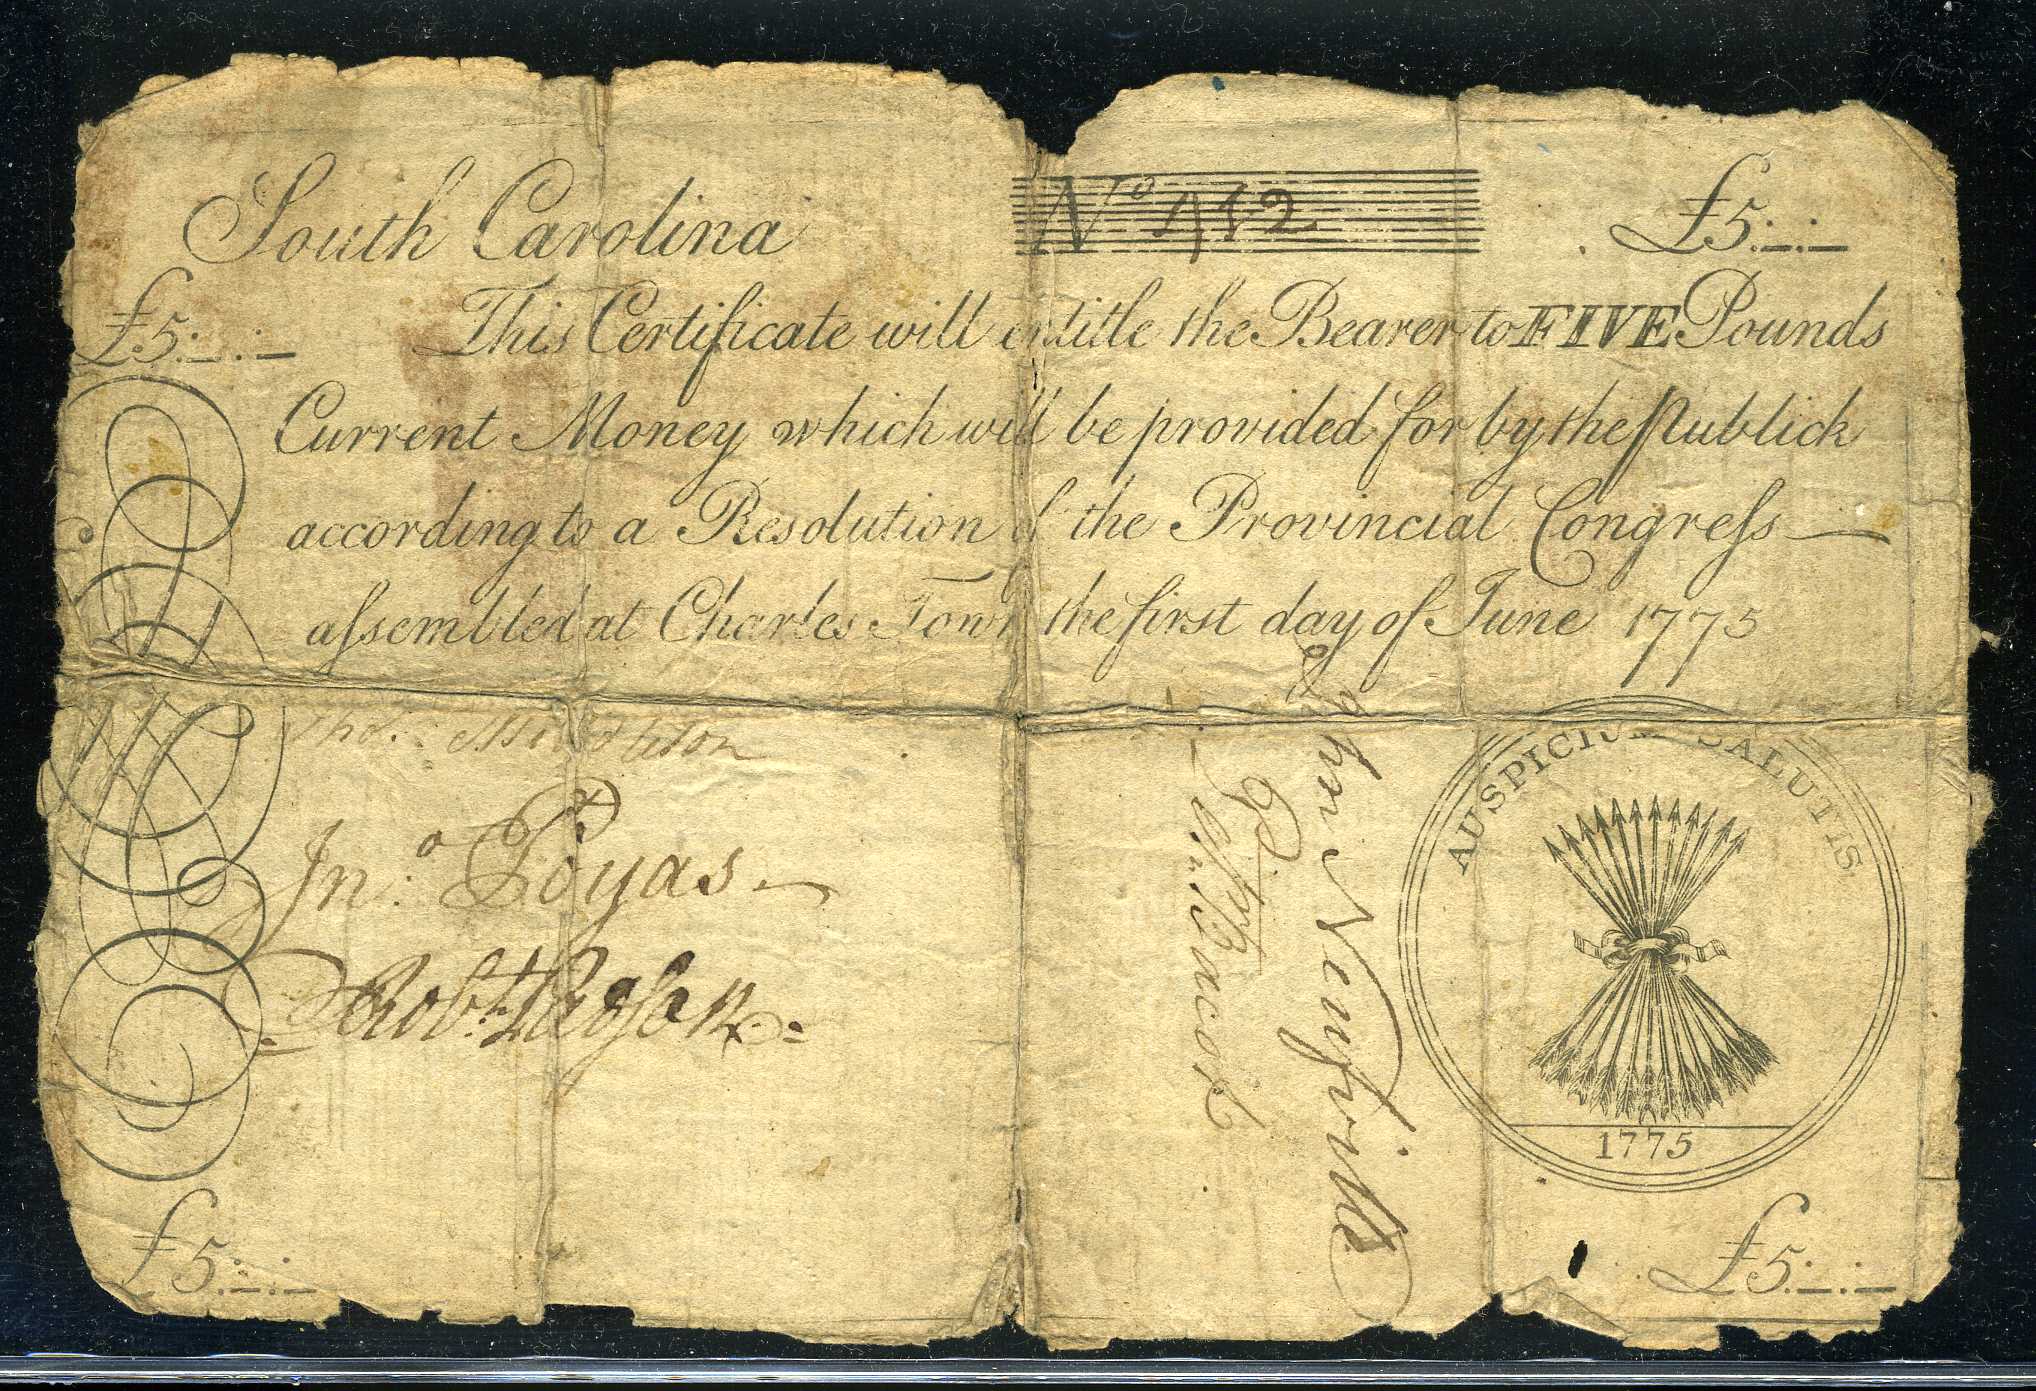 South Carolina No 412 £5:_:_
£5:_:_ This Certificate will entitle the Bearer to FIVE Pounds
Current Money which will be provided for by the Publick
according to a Resolution of the Provincial Congreſs —
aſsembled at Charles Town the first day of June 1775
Tho.s Middleton
Jn.o Poyas
Rob.t
John Neufville
Pet.r Bacot
AUSPICIUM SALUTIS
1775
£5:_:_
£5:_:_